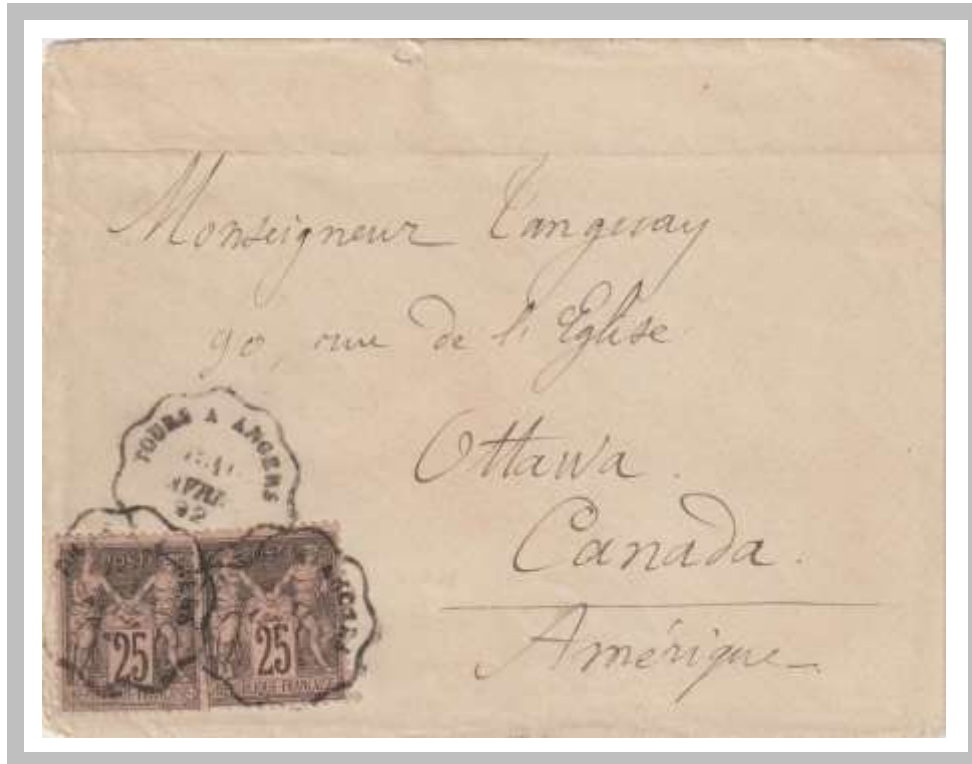 Monseigneur Tanguay
90, rue de l'Eglise
Ottawa.
Canada.
Amérique
TOURS A ANGERS
AVRIL
92
25
25